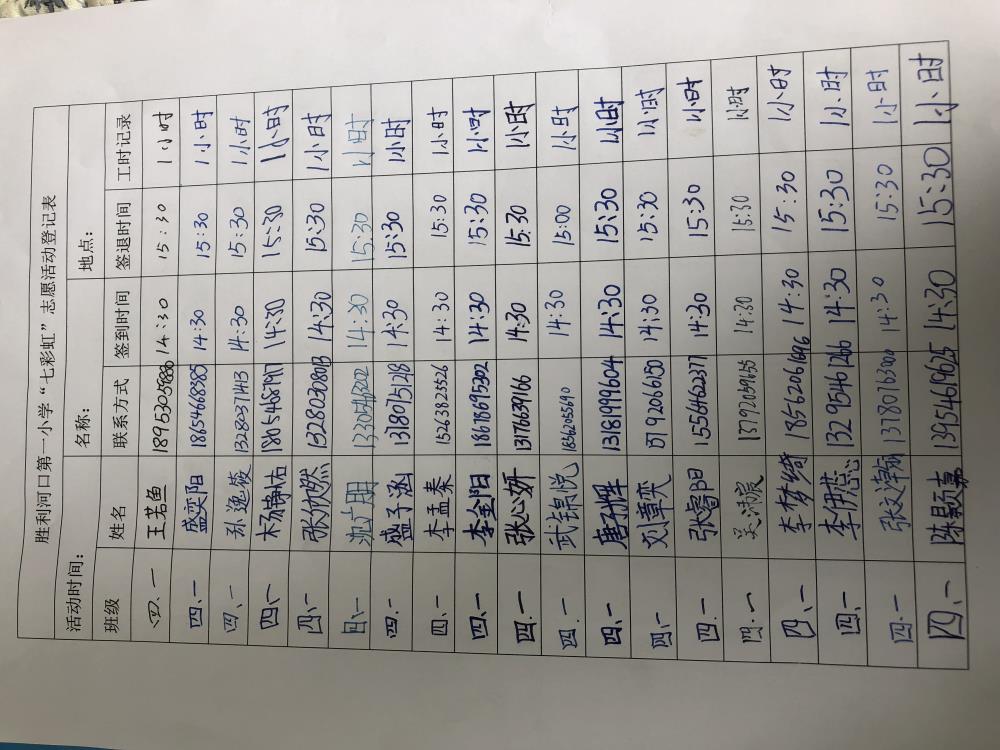 胜利河口第一小学“七彩虹”志愿活动登记表
活动时间： 名称： 地点：
班级 姓名 联系方式 签到时间 签退时间 工时记录
四.一 王若鱼 14:30 15:30 1小时
四.一 盛奕阳 18654668385 14:30 15:30 1小时
四.一 孙逸薇 13280371413 14:30 15:30 1小时
四.一 18054687917 14:30 15:30 1小时
四.一 张欣然 13280308013 14:30 15:30 1小时
四.一 13305463202 14:30 15:30 1小时
四.一 盛子涵 13180751218 14:30 15:30 1小时
四.一 李孟秦 15263825526 14:30 15:30 1小时
四.一 李全阳 18678695302 14:30 15:30 1小时
四.一 张心妍 13176639166 14:30 15:30 1小时
四.一 武锦悦 18562055690 14:30 15:00 1小时
四.一 13181999604 14:30 15:30 1小时
四.一 刘章奕 14:30 15:30 1小时
四.一 张睿阳 15564622377 14:30 15:30 1小时
四.一 13792059655 14:30 15:30 1小时
四.一 李梦绮 18562061696 14:30 15:30 1小时
四.一 李伊恋 13295461266 14:30 15:30 1小时
四.一 张文瀚 14:30 15:30 1小时
四.一 陈颢嘉 13954619625 14:30 15:30 1小时